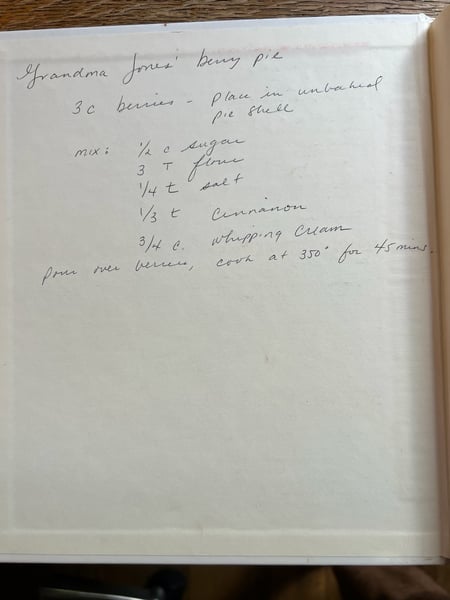 Grandma Jones' berry pie
3 c berries - Place in unbaked
pie shell
mix: 1/2 c sugar
3 T flour
1/4 t salt
1/3 t Cinnamon
3/4 c. whipping cream
Pour over berries, cook at 350° for 45 mins.